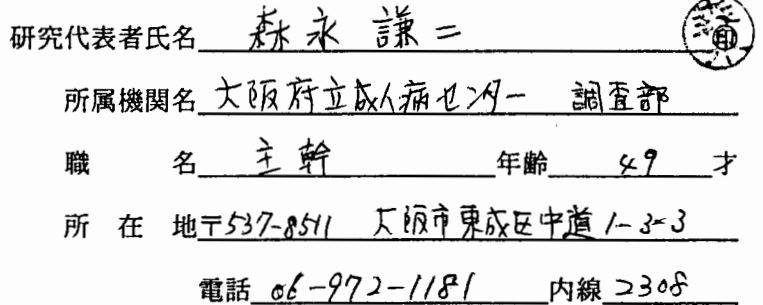 研究代表者氏名 森永謙二 印
所属機関名 大阪府立成人病センター 調査部
職 名 主幹 年齢 49 才
所 在 地 〒537-8511 大阪市東成区中道1-3-3
電話 06-972-1181 内線 2308